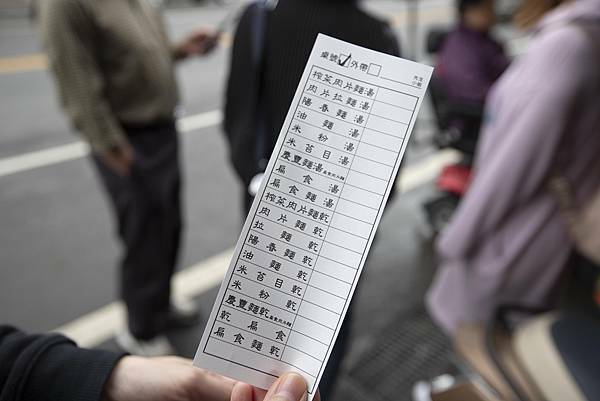 桌號 外帶
內盒
小瓶
榨菜肉片麵湯
肉片拉麵湯
陽春麵湯
油麵湯
米粉湯
米苔目湯
慶豐麵湯
扁食湯
扁食麵湯
榨菜肉片麵乾
肉片麵乾
拉麵乾
陽春麵乾
油麵乾
米苔目乾
米粉乾
慶豐麵乾
乾扁食
扁食麵乾